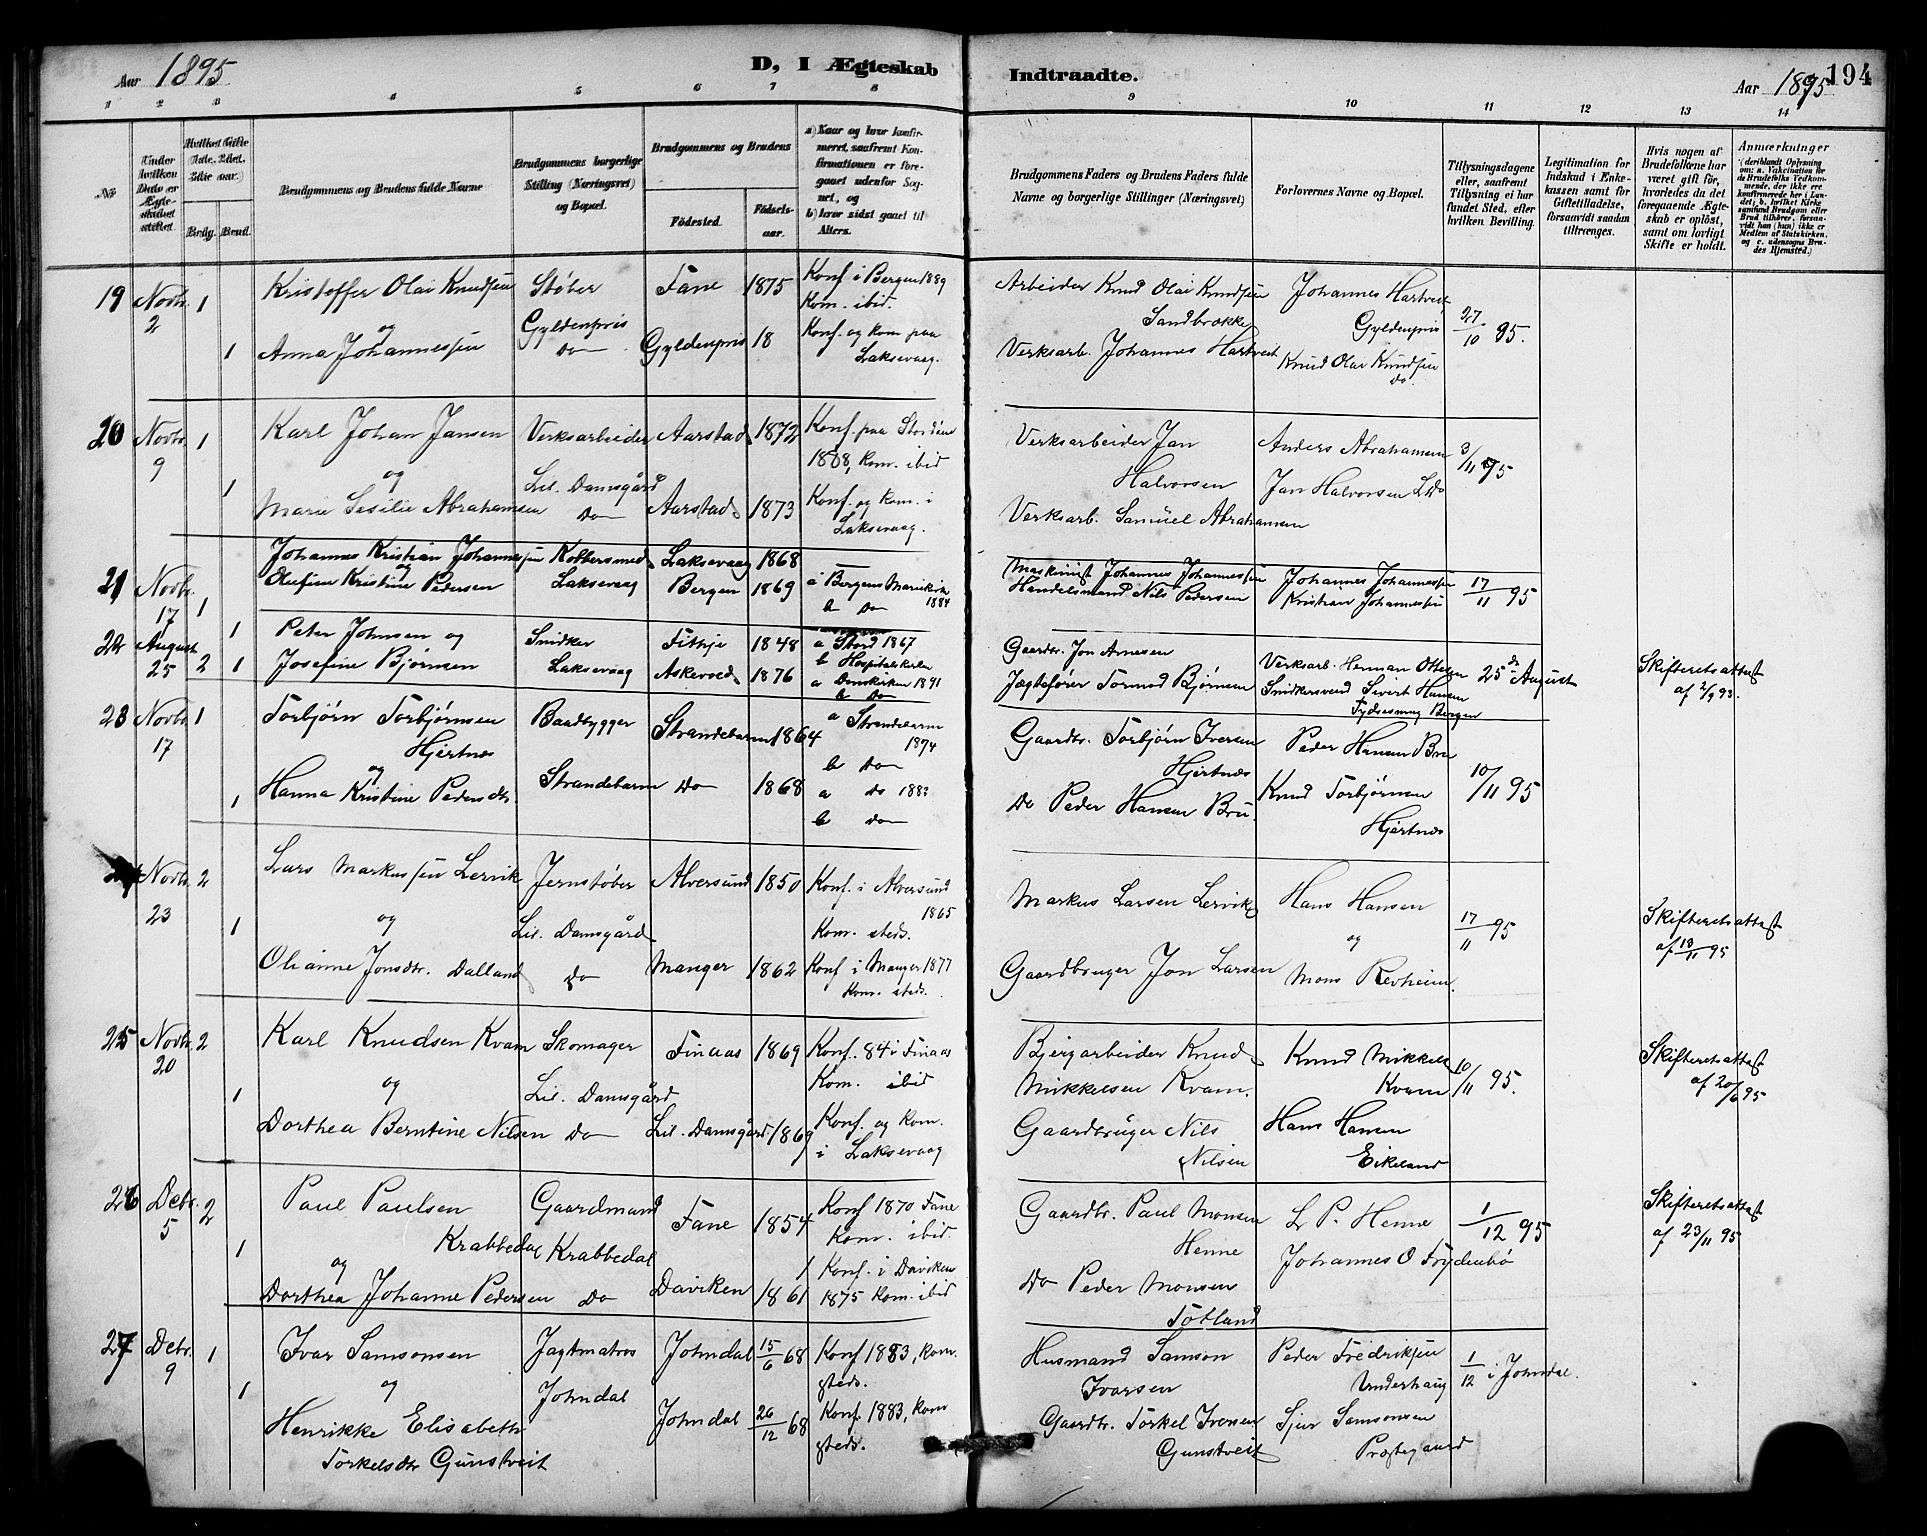 Aar 1895
D, I Ægteskab
Indtraadte.
Aar 1895
194
1 2 3 4 5 6 7 8 9 10 11 12 13 14
No
Under hvilken Dato er Ægteskabet stiftet
Brudg. Brud.
Brudgommens og Brudens fulde Navne
Brudgommens borgerlige Stilling (Næringsvei) og Bopæl.
Brudgommens og Brudens
Födested.
Födselsaar.
a) Naar og hvor konfirmeret, saafremt Konfirmationen er foregaaet udenfor Sognet, og
b) hvor sidst gaaet til Alters.
Brudgommens Faders og Brudens Faders fulde Navne og borgerlige Stillinger (Næringsvei)
Forlovernes Navne og Bopæl.
Tillysningsdagene eller, saafremt Tillysning ei har fundet Sted, efter hvilken Bevilling.
Legitimation for Indskud i Enkekassen samt for Giftetilladelse, forsaavidt saadan tiltrænges.
Hvis nogen af Brudefolkene har været gift før, hvorledes da det foregaaende Ægteskab er oplöst, samt om lovligt Skifte er holdt.
Anmærkninger
19 Novbr. 2 1 Kristoffer Olai Knudsen Støber Fane 1875 Konf i Bergen 1889
Kom. ibid.
og Gyldenpris
1 Anna Johannessen Do Gyldenpris 18 Konf. og kom paa
Laksevaag.
Arbeider Knud Olai Knudsen Johannes Hartveit
Sandbrække Gyldenpris 27/10 95.
Verksarb. Johannes Hartveit Knud Olai Knudsen
Do.
20 Novbr. 9 1 Karl Johan Jansen Verksarbeider Aarstad 1872 Konf. paa Stordøen
1888, kom. ibid
og Lil. Damsgård
1 Marie Sesilie Abrahamsen Do Aarstad 1873 Konf. og kom. i
Laksevaag.
Verksarbeider Jan Anders Abrahamsen 3/11 95
Halvorsen Jan Halvorsen
Verksarb. Samuel Abrahamsen
21 Novbr. 17 1 Johannes Kristian Johannessen Kobbersmed Laksevaag 1868
og
1 Olufine Kristine Pedersen Laksevaag Bergen 1869 a Bergens Mariekirk
1884
b Do
Maskinist Johannes Johannessen Johannes Johannessen 17/11 95
Handelsmand Nils Pedersen Kristian Johannessen
22 August 25 2 Peter Johnsen og Snidker Fitkje 1848 a Stord 1867
b Hospitalskirken
1 Josefine Bjørnsen Laksevaag Askevold 1876 a Domkirken 1891
b Do
Gaardbr. Jon Arnesen Verksarb. Herman Ottesen 25de August Skifteretsattest
Jægtefører Tormod Bjørnsen Snidkersvend Sivert Hansen
Bergen
23 Novbr. 17 1 Torbjørn Torbjørnsen Baadbygger Strandebarm 1864 a Strandebarm
1874
Hjertnes b Do
og
1 Hanna Kristine Pedersdtr. Strandebarm Do 1868 a Do 1883
b Do
Gaardbr. Torbjørn Iversen Peder Hansen Bru
Hjertnes 10/11 95
Do Peder Hansen Bru. Knud Torbjørnsen
Hjertnes
24 Novbr. 23 2 Lars Markussen Lervik Jernstøber Alversund 1850 Konf. i Alversund
1865
og Lil. Damsgård Kom. steds.
1 Olianne Jonsdtr. Dalland Do Manger 1862 Konf i Manger 1877
Kom. steds.
Markus Larsen Lervik Hans Hansen 17/11 95 Skifteretsattest
og af 13/11 95
Gaardbruger Jon Larsen Mons Revheim.
25 Novbr. 20 2 Karl Knudsen Kvam Skomager Finaas 1869 Konf. 84 i Finaas
Kom. ibid
og Lil. Damsgård
1 Dorthea Berntine Nilsen Do Lil. Damsgård 1869 Konf. og Kom.
i Laksevaag
Bjergarbeider Knud Knud Mikkels Skifteretsattest
Mikkelsen Kvam. Kvam 10/11 95. af 20/6 95
Gaardbruger Nils Hans Hansen
Nilsen Eikeland
26 Debr. 5 2 Paul Paulsen Gaardmand Fane 1854 Konf 1870 Fane
Krabbedal Krabbedal Kom. ibid.
og Konf. i Daviken
1 Dorthea Johanne Pedersen Do Daviken 1861 1875 Kom. ibid
Gaardbr. Paul Monsen L P. Henne 1/12 95 Skifteretsattest
Henne af 23/11 95
Johannes O Frydenbø
Do Peder Monsen
Totland
27 Debr. 9 1 Ivar Samsonsen Jagtmatros Johndal 15/6 68 Konf 1883, kom.
steds.
og Johndal
1 Henrikke Elisabeth Johndal 26/12 68 Konf 1883, kom
Torkelsdtr Gunstveit steds.
Husmand Samson Peder Fredriksen 1/12 i Johndal.
Ivarsen Underhaug
Gaardbr. Torkel Iversen Sjur Samsonsen
Gunstveit Præstegaard